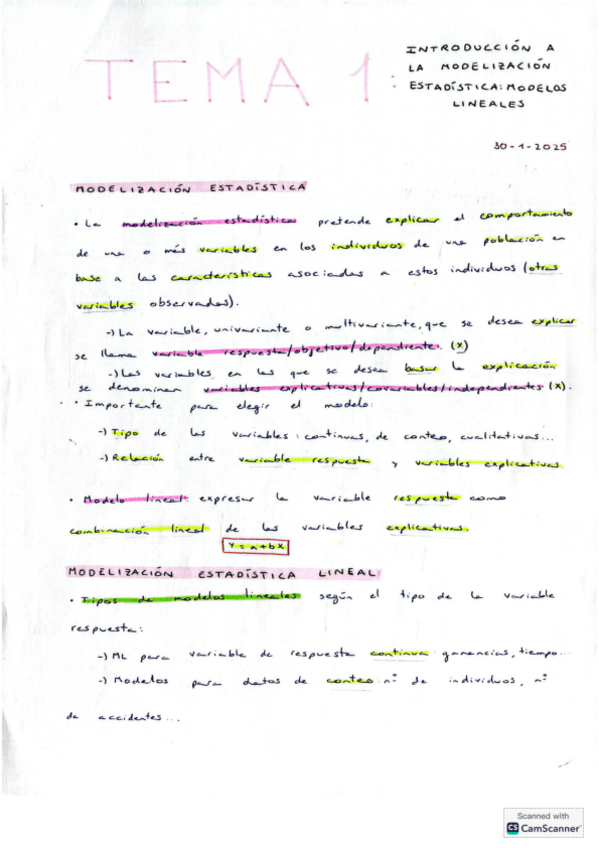 TEMA 1:
INTRODUCCIÓN A
LA MODELIZACIÓN
ESTADÍSTICA: MODELOS
LINEALES
30-1-2025
MODELIZACIÓN ESTADÍSTICA
• La modelización estadística pretende explicar el comportamiento
de una o más variables en los individuos de una población en
base a las características asociadas a estos individuos (otras
variables observadas).
-) La variable, univariante o multivariante, que se desea explicar
se llama variable respuesta/objetivo/dependiente. (Y)
-) Las variables en las que se desea basar la explicación
se denominan variables explicativas/covariables/independientes (X).
• Importante para elegir el modelo:
-) Tipo de las variables: continuas, de conteo, cualitativas...
-) Relación entre variable respuesta y variables explicativas.
• Modelo lineal: expresar la variable respuesta como
combinación lineal de las variables explicativas.
Y = a + bX
MODELIZACIÓN ESTADÍSTICA LINEAL
• Tipos de modelos lineales según el tipo de la variable
respuesta:
-) ML para variable de respuesta continua: ganancias, tiempo...
-) Modelos para datos de conteo: nº de individuos, nº
de accidentes...
Scanned with
CS CamScanner